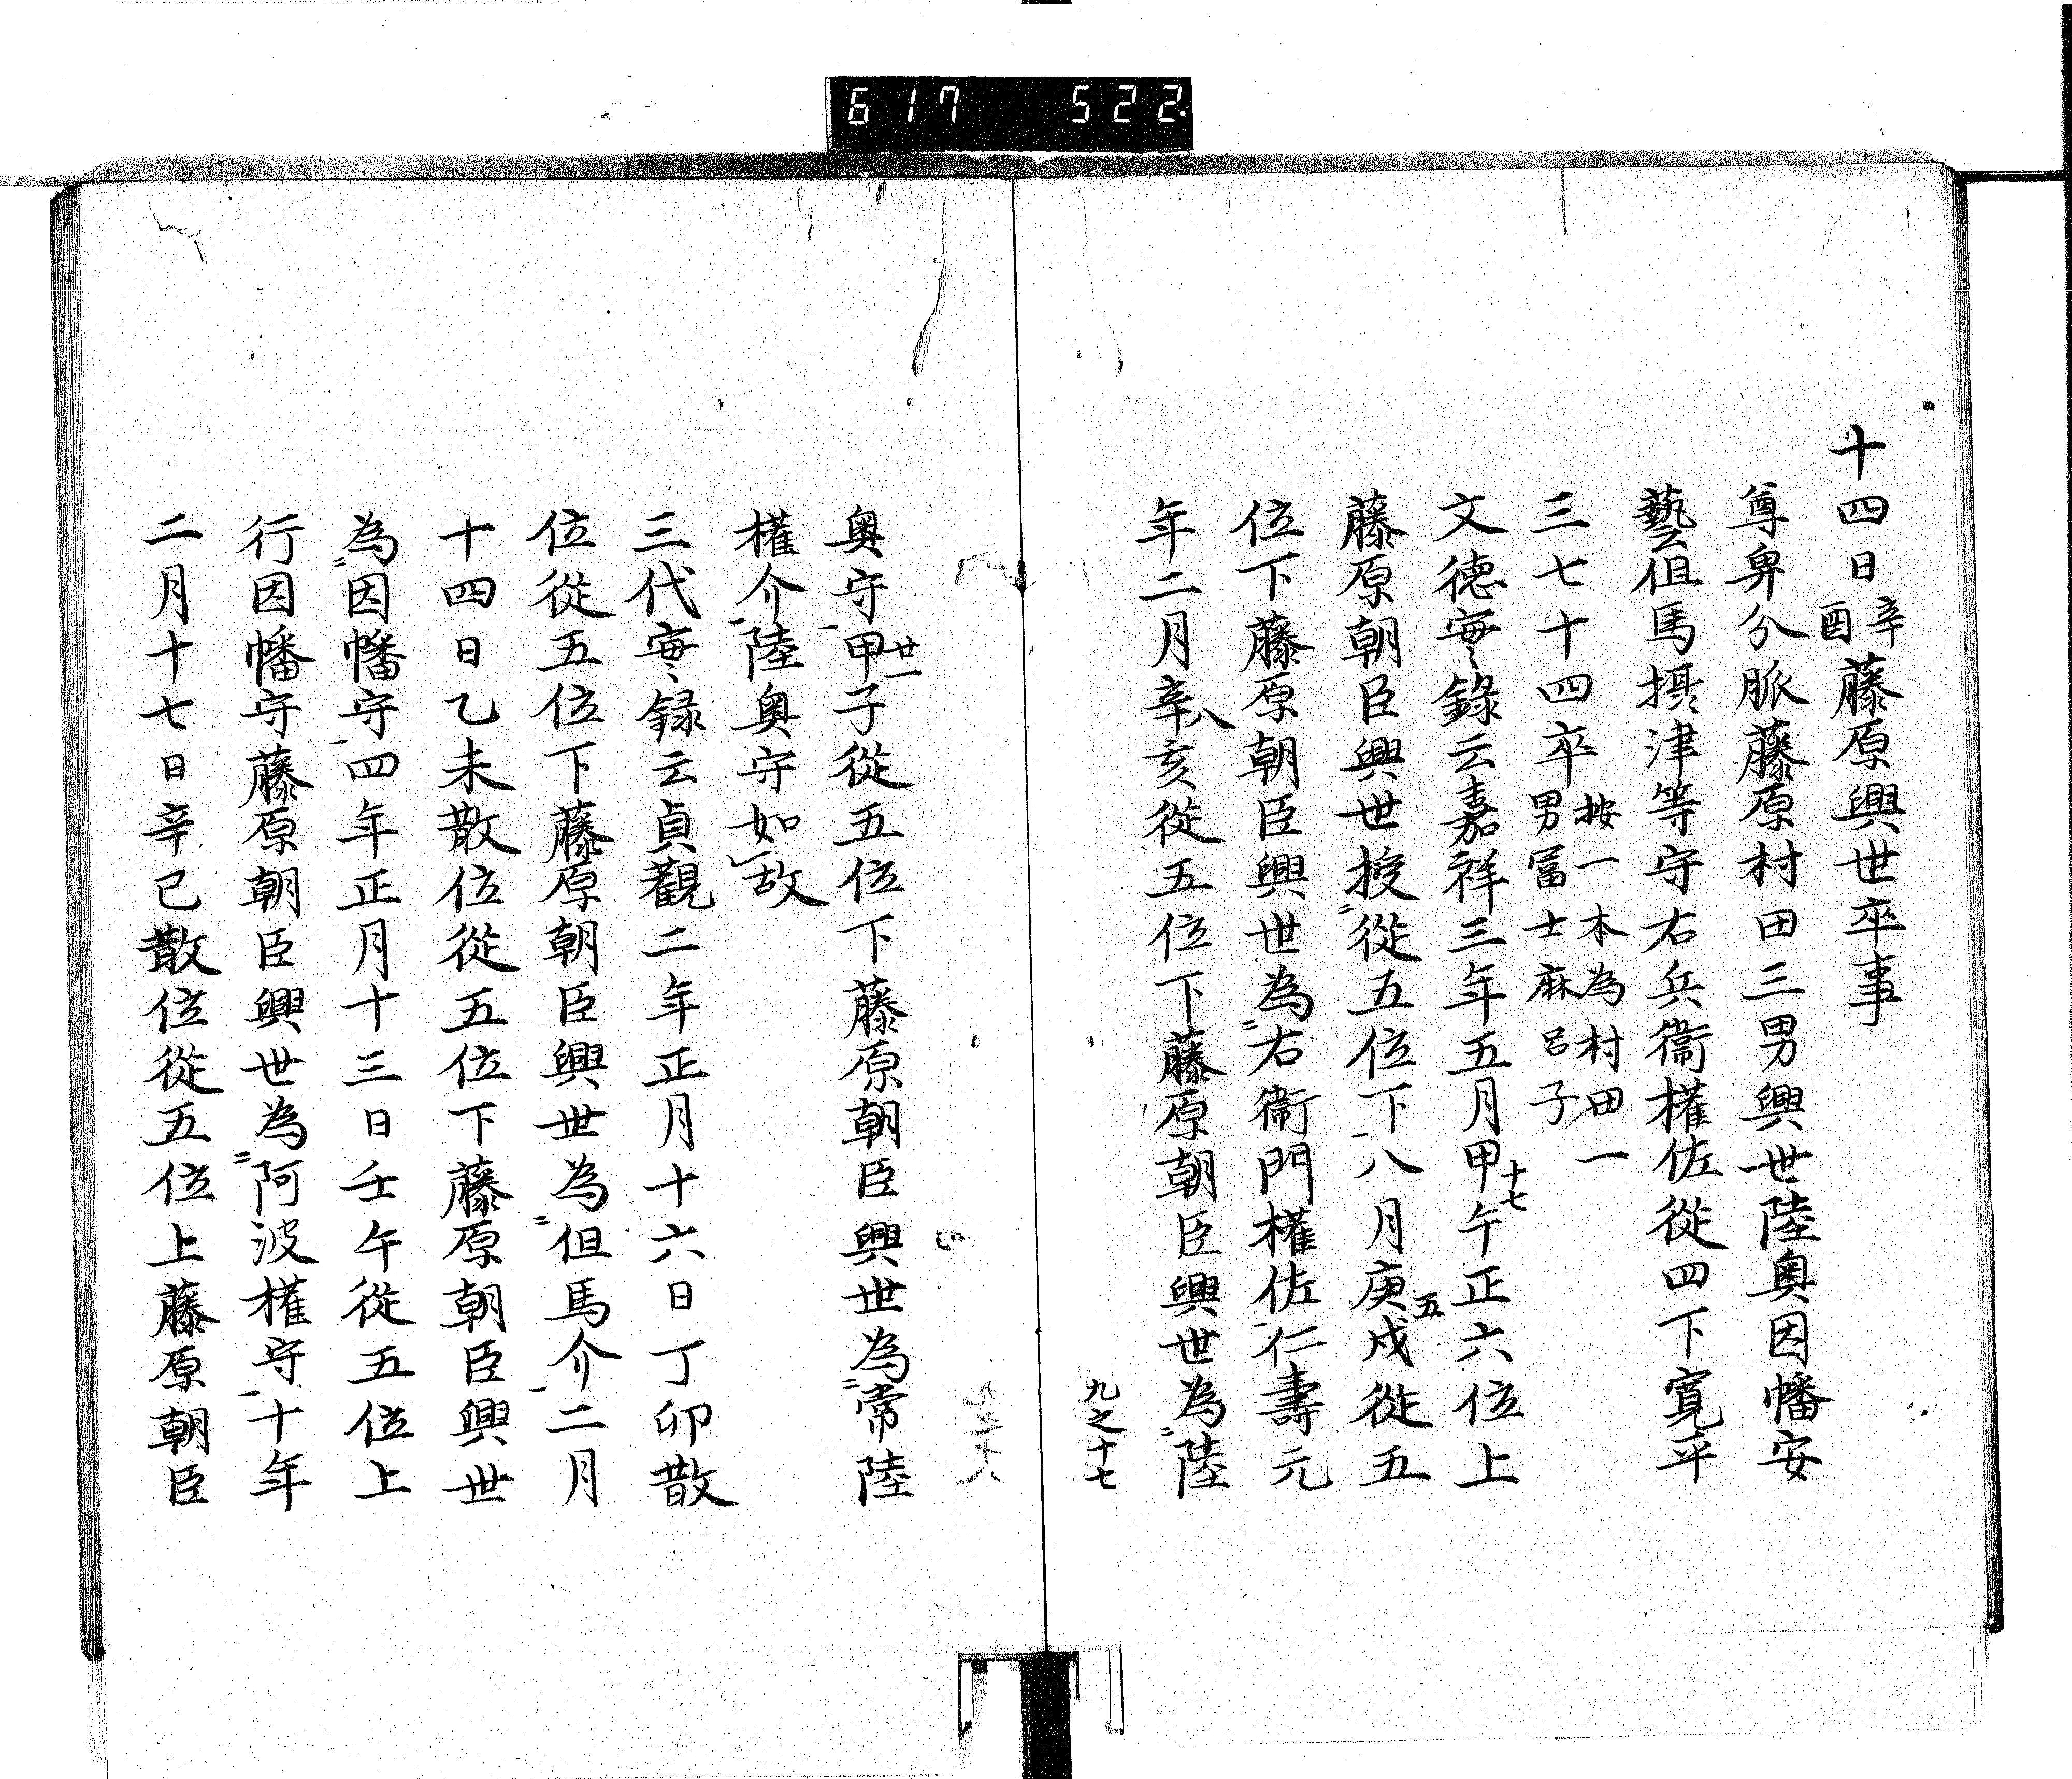 617 522.
十四日辛酉藤原興世卒事
尊卑分脈藤原村田三男興世陸奥因幡安
藝但馬摂津等守右兵衞權佐從四下寛平
三七十四卒按一本為村田一男冨士麻呂子
文德寔録云嘉祥三年五月甲十七午正六位上
藤原朝臣興世授二從五位下一八月庚五戌從五
位下藤原朝臣興世為二右衞門權佐一仁壽元
年二月辛八亥從五位下藤原朝臣興世為二陸
九之十七
奥守一甲廿一子從五位下藤原朝臣興世為二常陸
權介一陸奥守如レ故
三代寔録云貞觀二年正月十六日丁卯散
位從五位下藤原朝臣興世為二但馬介一二月
十四日乙未散位從五位下藤原朝臣興世
為二因幡守一四年正月十三日壬午從五位上
行因幡守藤原朝臣興世為二阿波權守一十年
二月十七日辛巳散位從五位上藤原朝臣